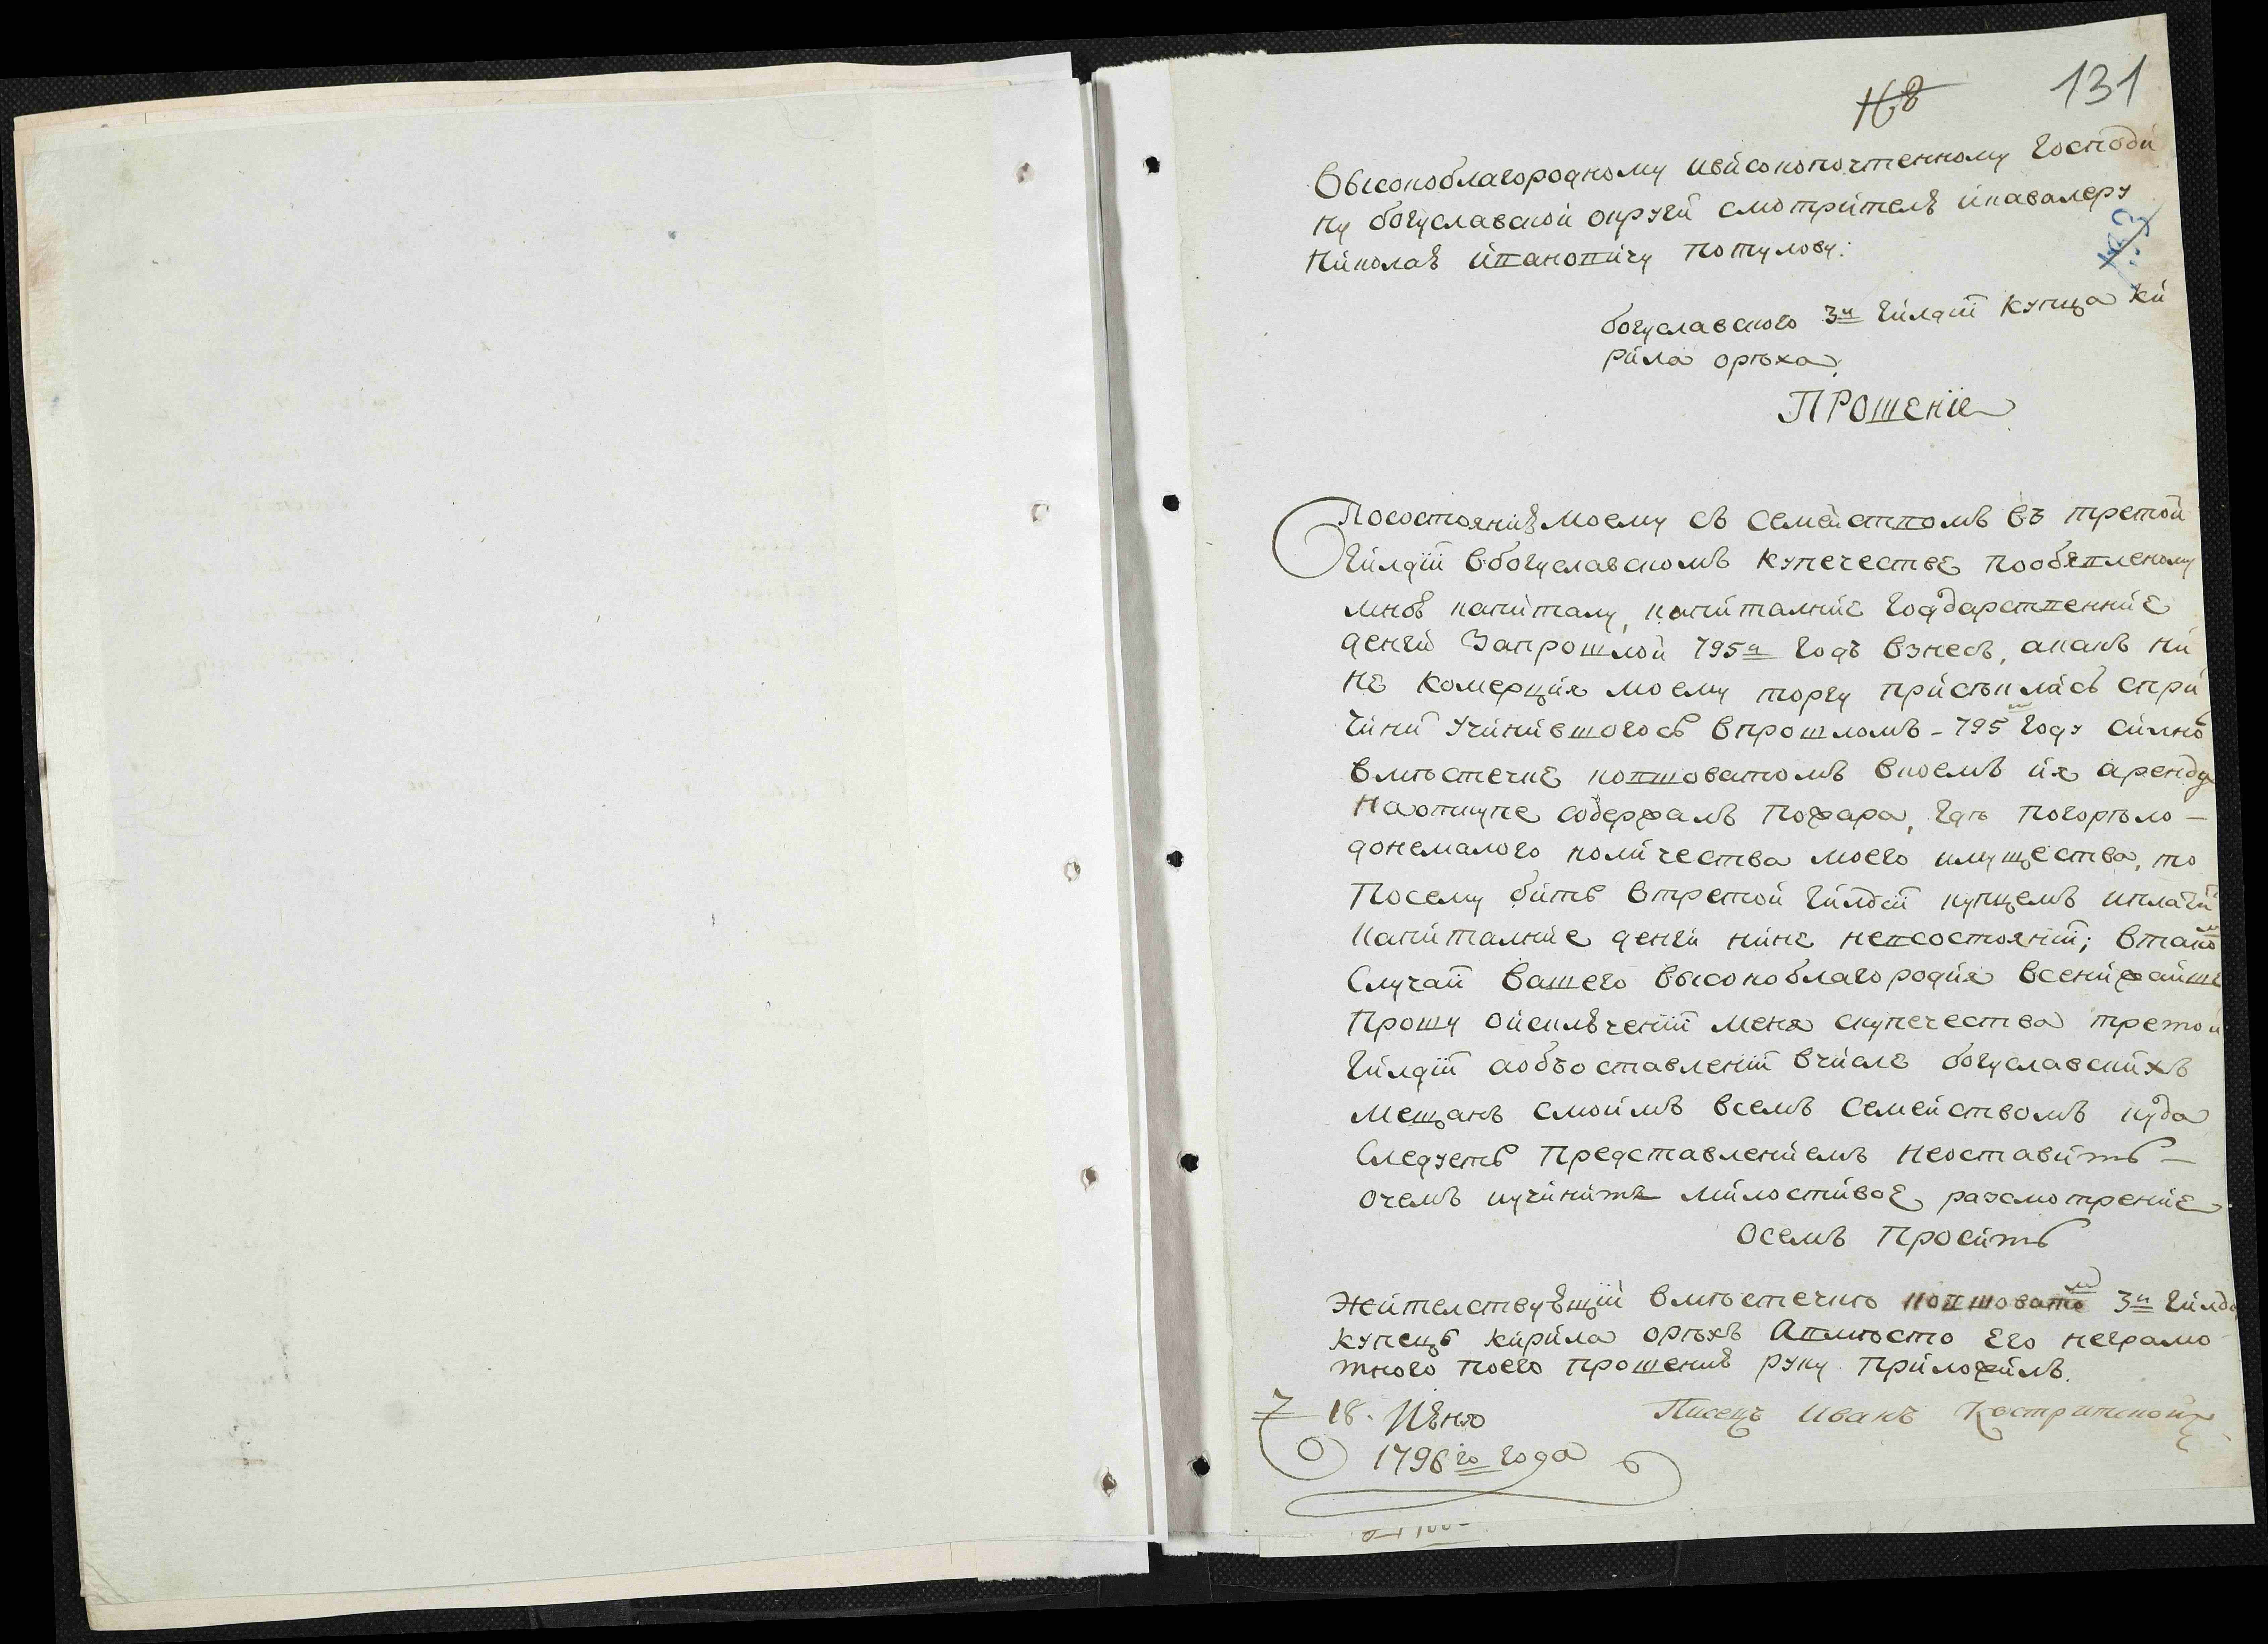 131
Высокоблагородному ивисокопочтенному Господи
ну богуславской округи смотрителю икавалеру
Николаю ивановичу потулову:
богуславского 3й гилдіи купца Ки
рила орѣха
ПРОШЕНІЕ
Посостоянию моему съ семействомъ въ третой
Гилдіи вбогуславскомъ купечестве пообявленому
мною капиталу, капиталние государственние
денги Запрошлой 795й годъ взнесъ, акакъ ни
не комерция моему торгу присѣклась спри
чини учинившогось впрошломъ - 795м году силно
вмѣстечке ковшоватомъ вкоемъ ия аренду
Наоткупе содержалъ пожара, гдѣ погорѣло -
донемалого количества моего имущества, то
Посему бить втретой гилдіи купцемъ иплати
капиталние денги нине невсостояніи; втаком
Случаи вашего высокоблагородия всенижайше
Прошу оисключеніи меня скупечества третой
Гилдіи аобъоставленіи вчисле богуславскихъ
мещанъ смоимъ всемъ семействомъ куда
Следуетъ Представлениемъ неоставить -
очемъ иучинить милостивое разсмотрение
Осемъ Просить
Жителствующій вмѣстечкѣ ковшоватом 3й гилди
купецъ кирила орѣхъ Авмѣсто его неграмо
тного поего прошению руку приложилъ.
18. Июня Писецъ Иванъ
1796го года